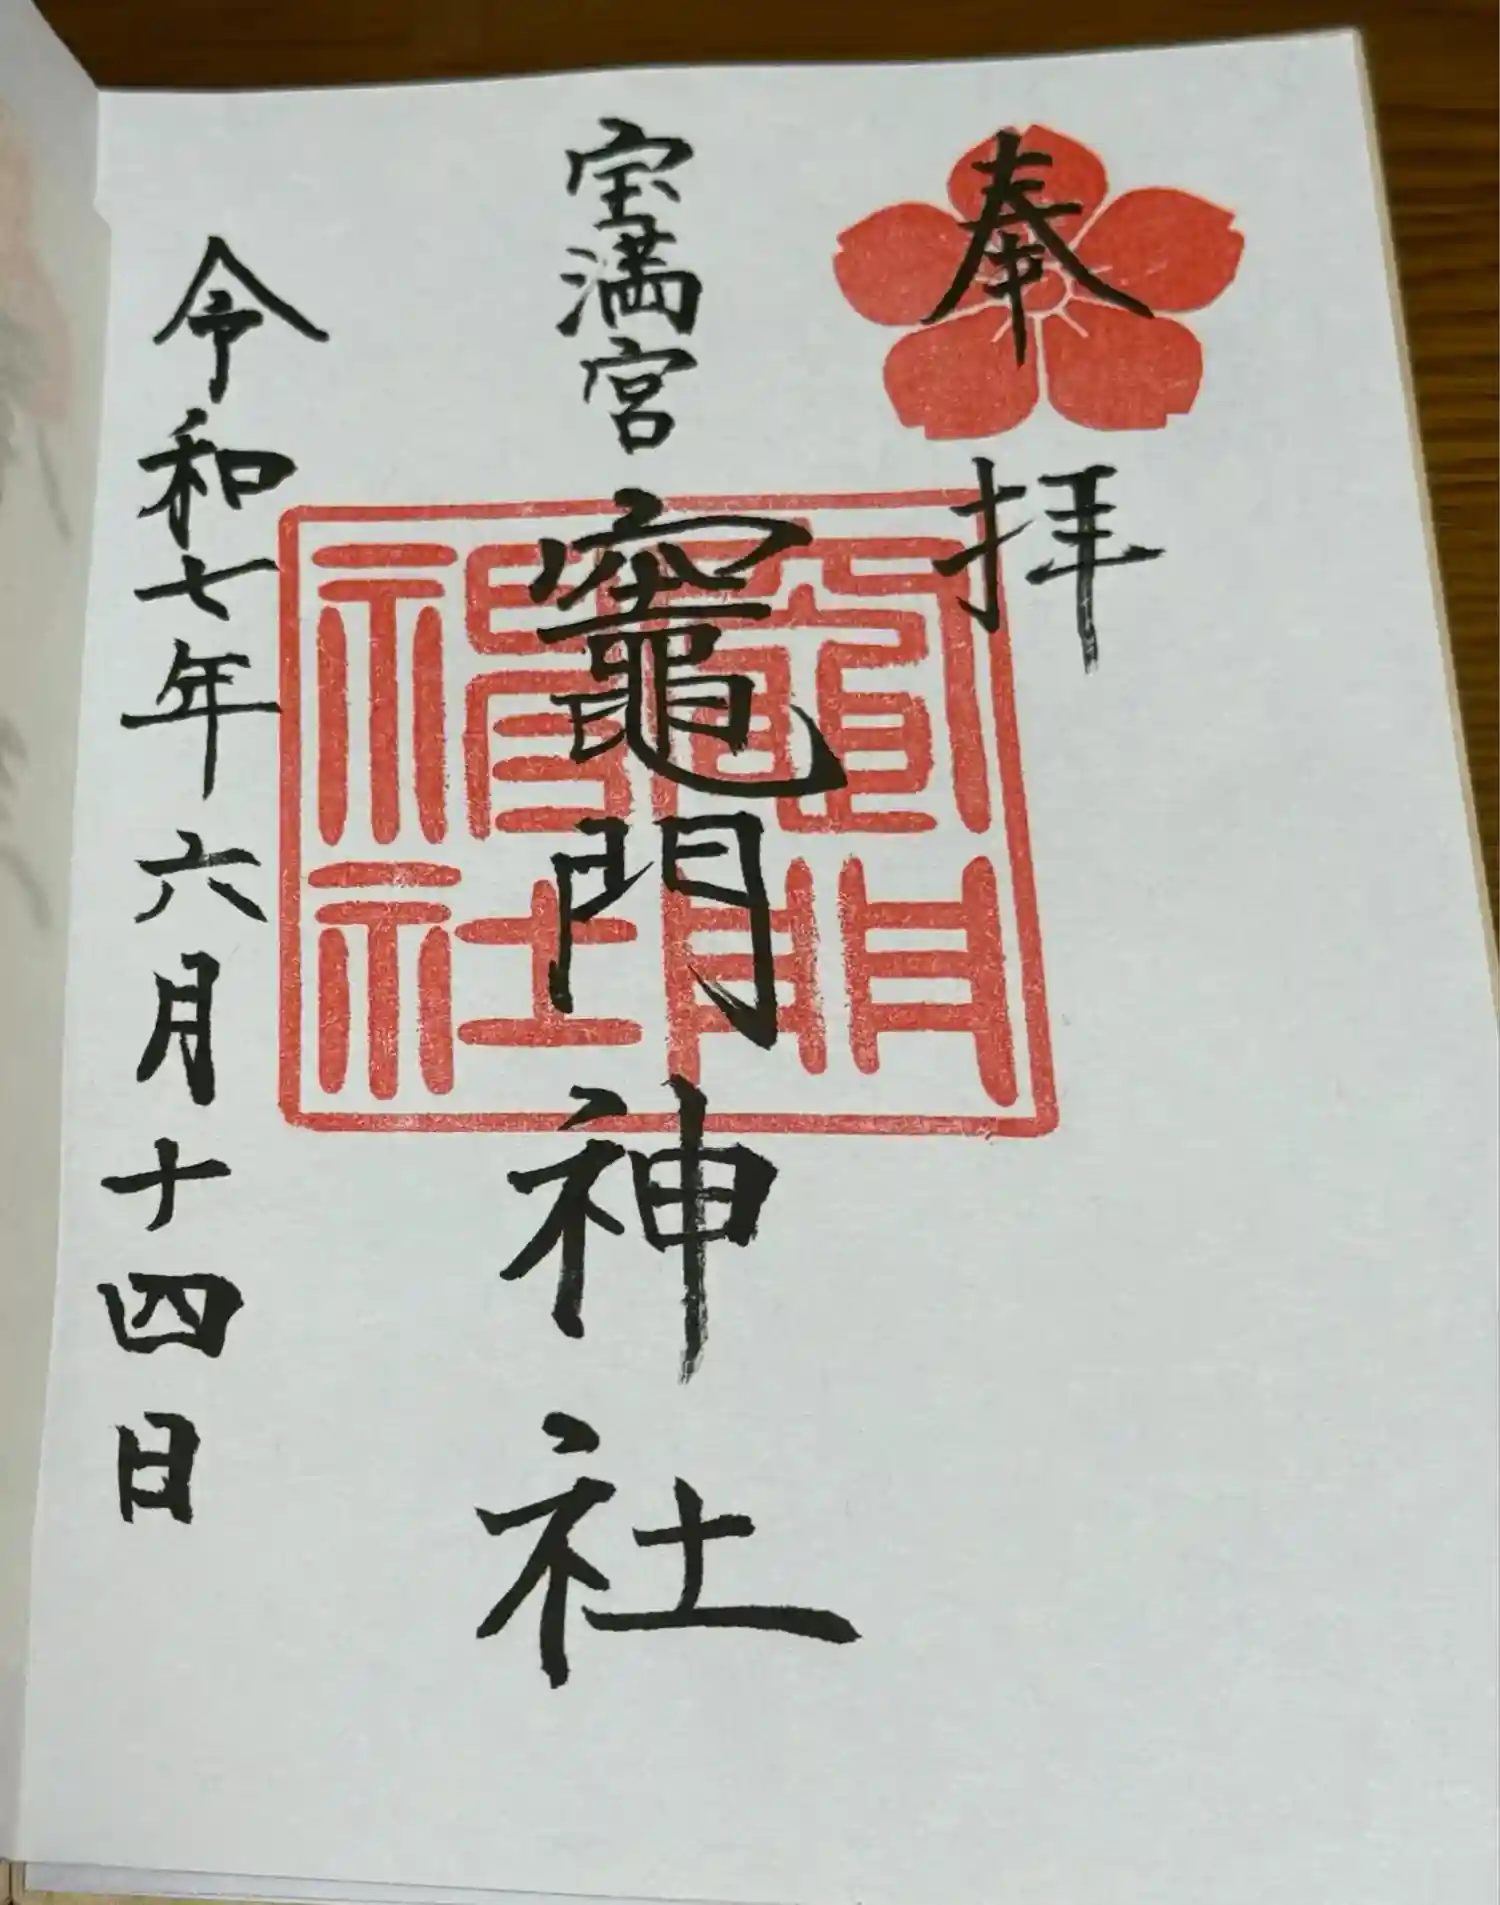 奉拝
宝満宮 竈門神社
令和七年六月十四日
竈門神社